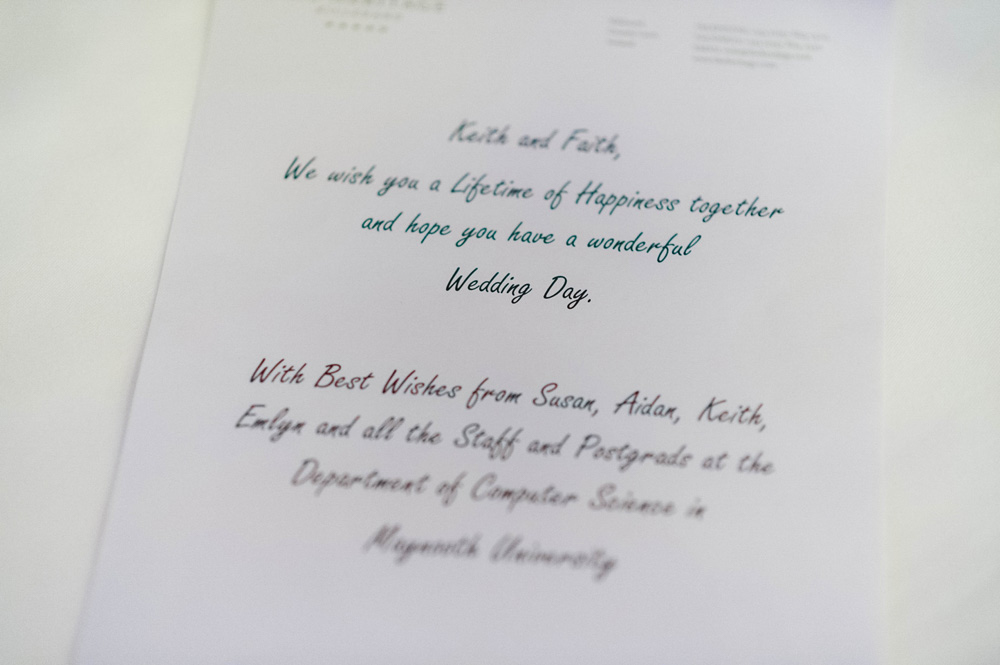 Keith and Faith,
We wish you a Lifetime of Happiness together
and hope you have a wonderful
Wedding Day.
With Best Wishes from Susan, Aidan, Keith,
Emlyn and all the Staff and Postgrads at the
Department of Computer Science in
Maynooth University